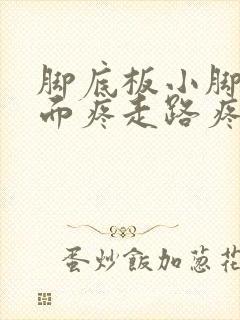 脚底板小脚
而疼走路疼
蛋炒飯加蔥花